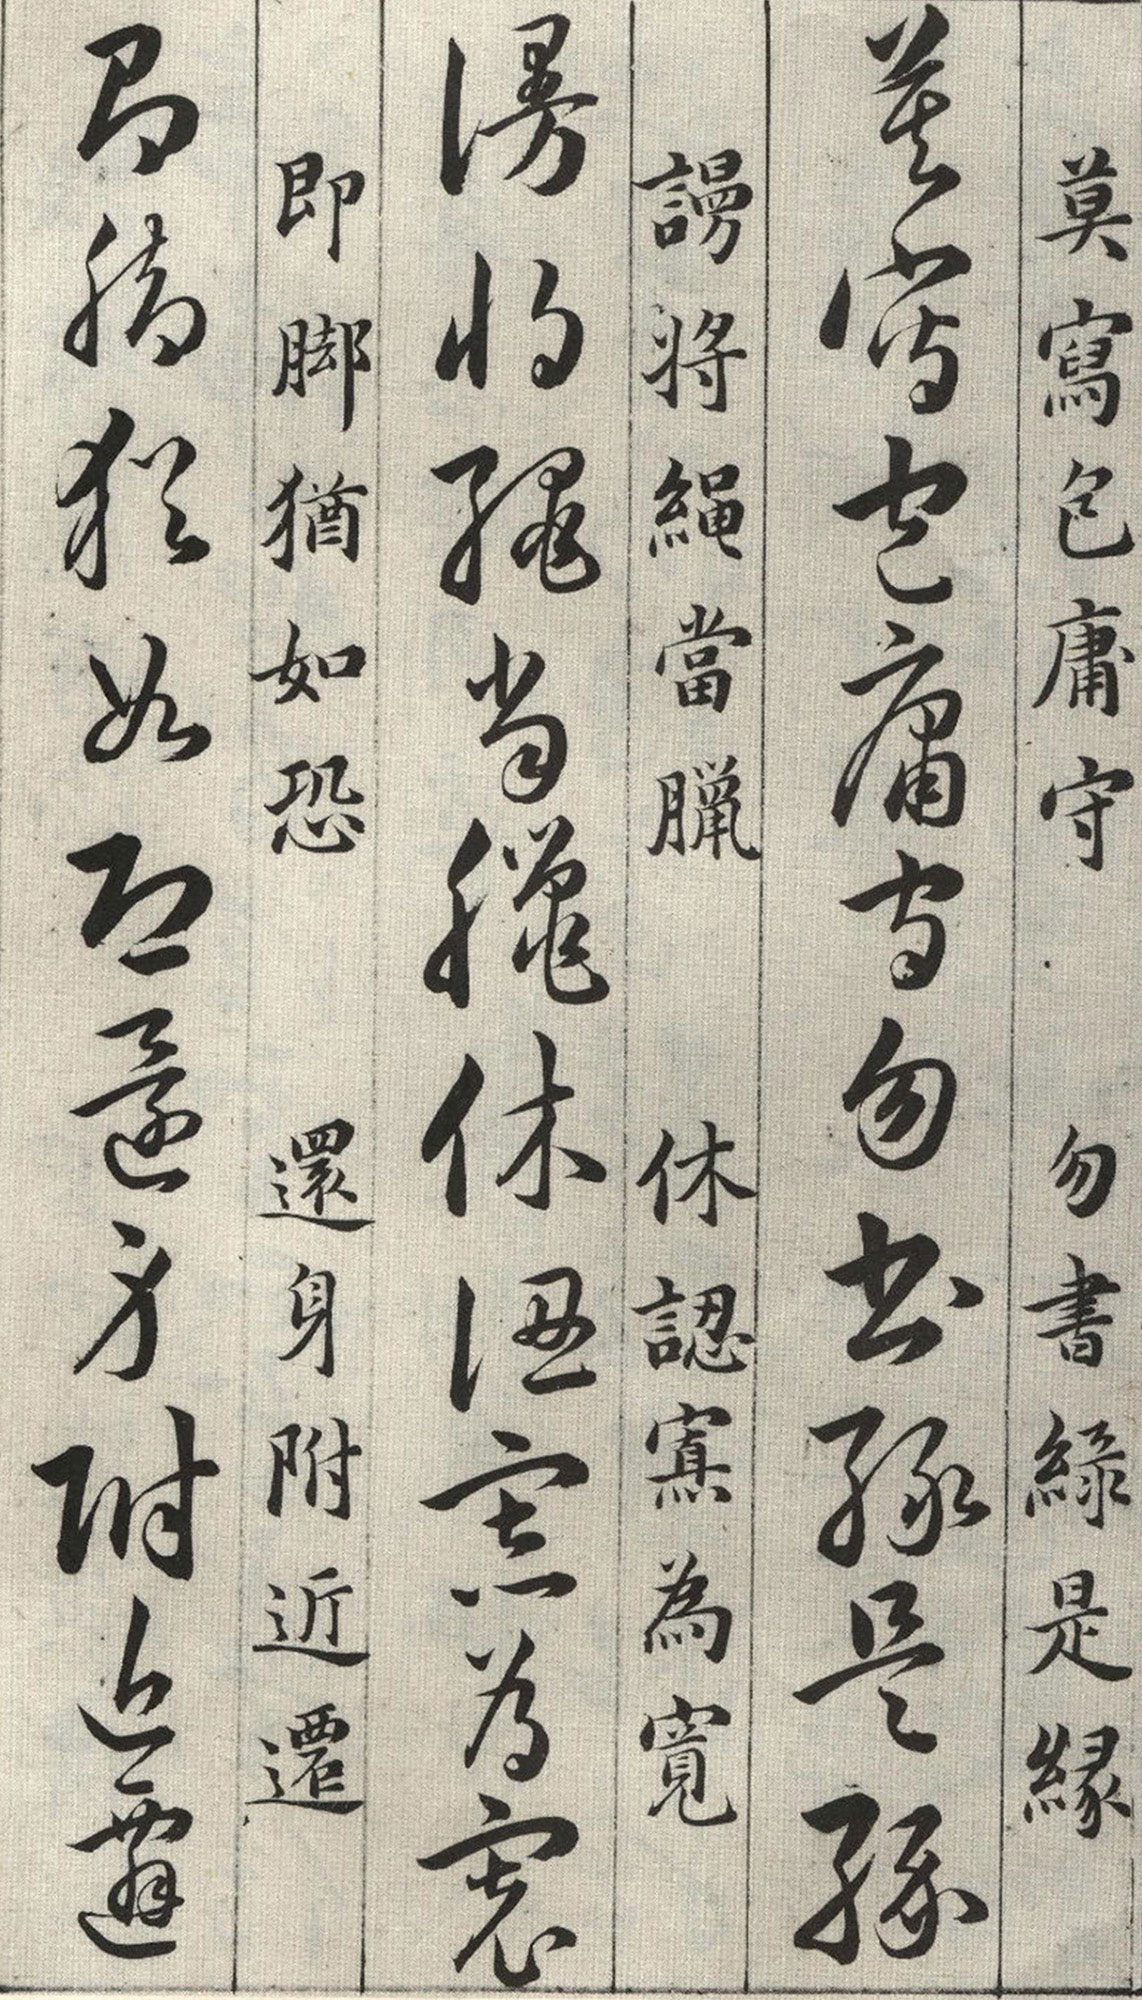 莫寫包庸守 勿書綠是緣
莫寫包庸守勿書綠是緣
謾將繩當臘 休認寡為寬
謾將繩當臘休認寡為寬
即脚猶如恐 還身附近遷
即脚猶如恐還身附近遷